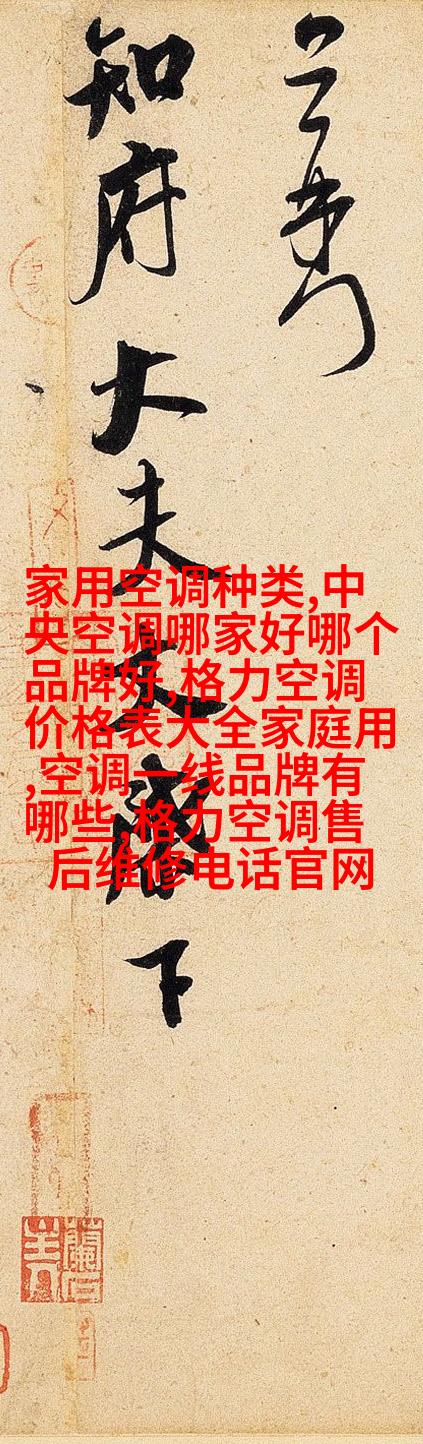 知府大夫丈下
家用空调种类,中
央空调哪家好哪个
品牌好,格力空调
价格表大全家庭用
,空调一线品牌有
哪些,格力空调售
后维修电话官网